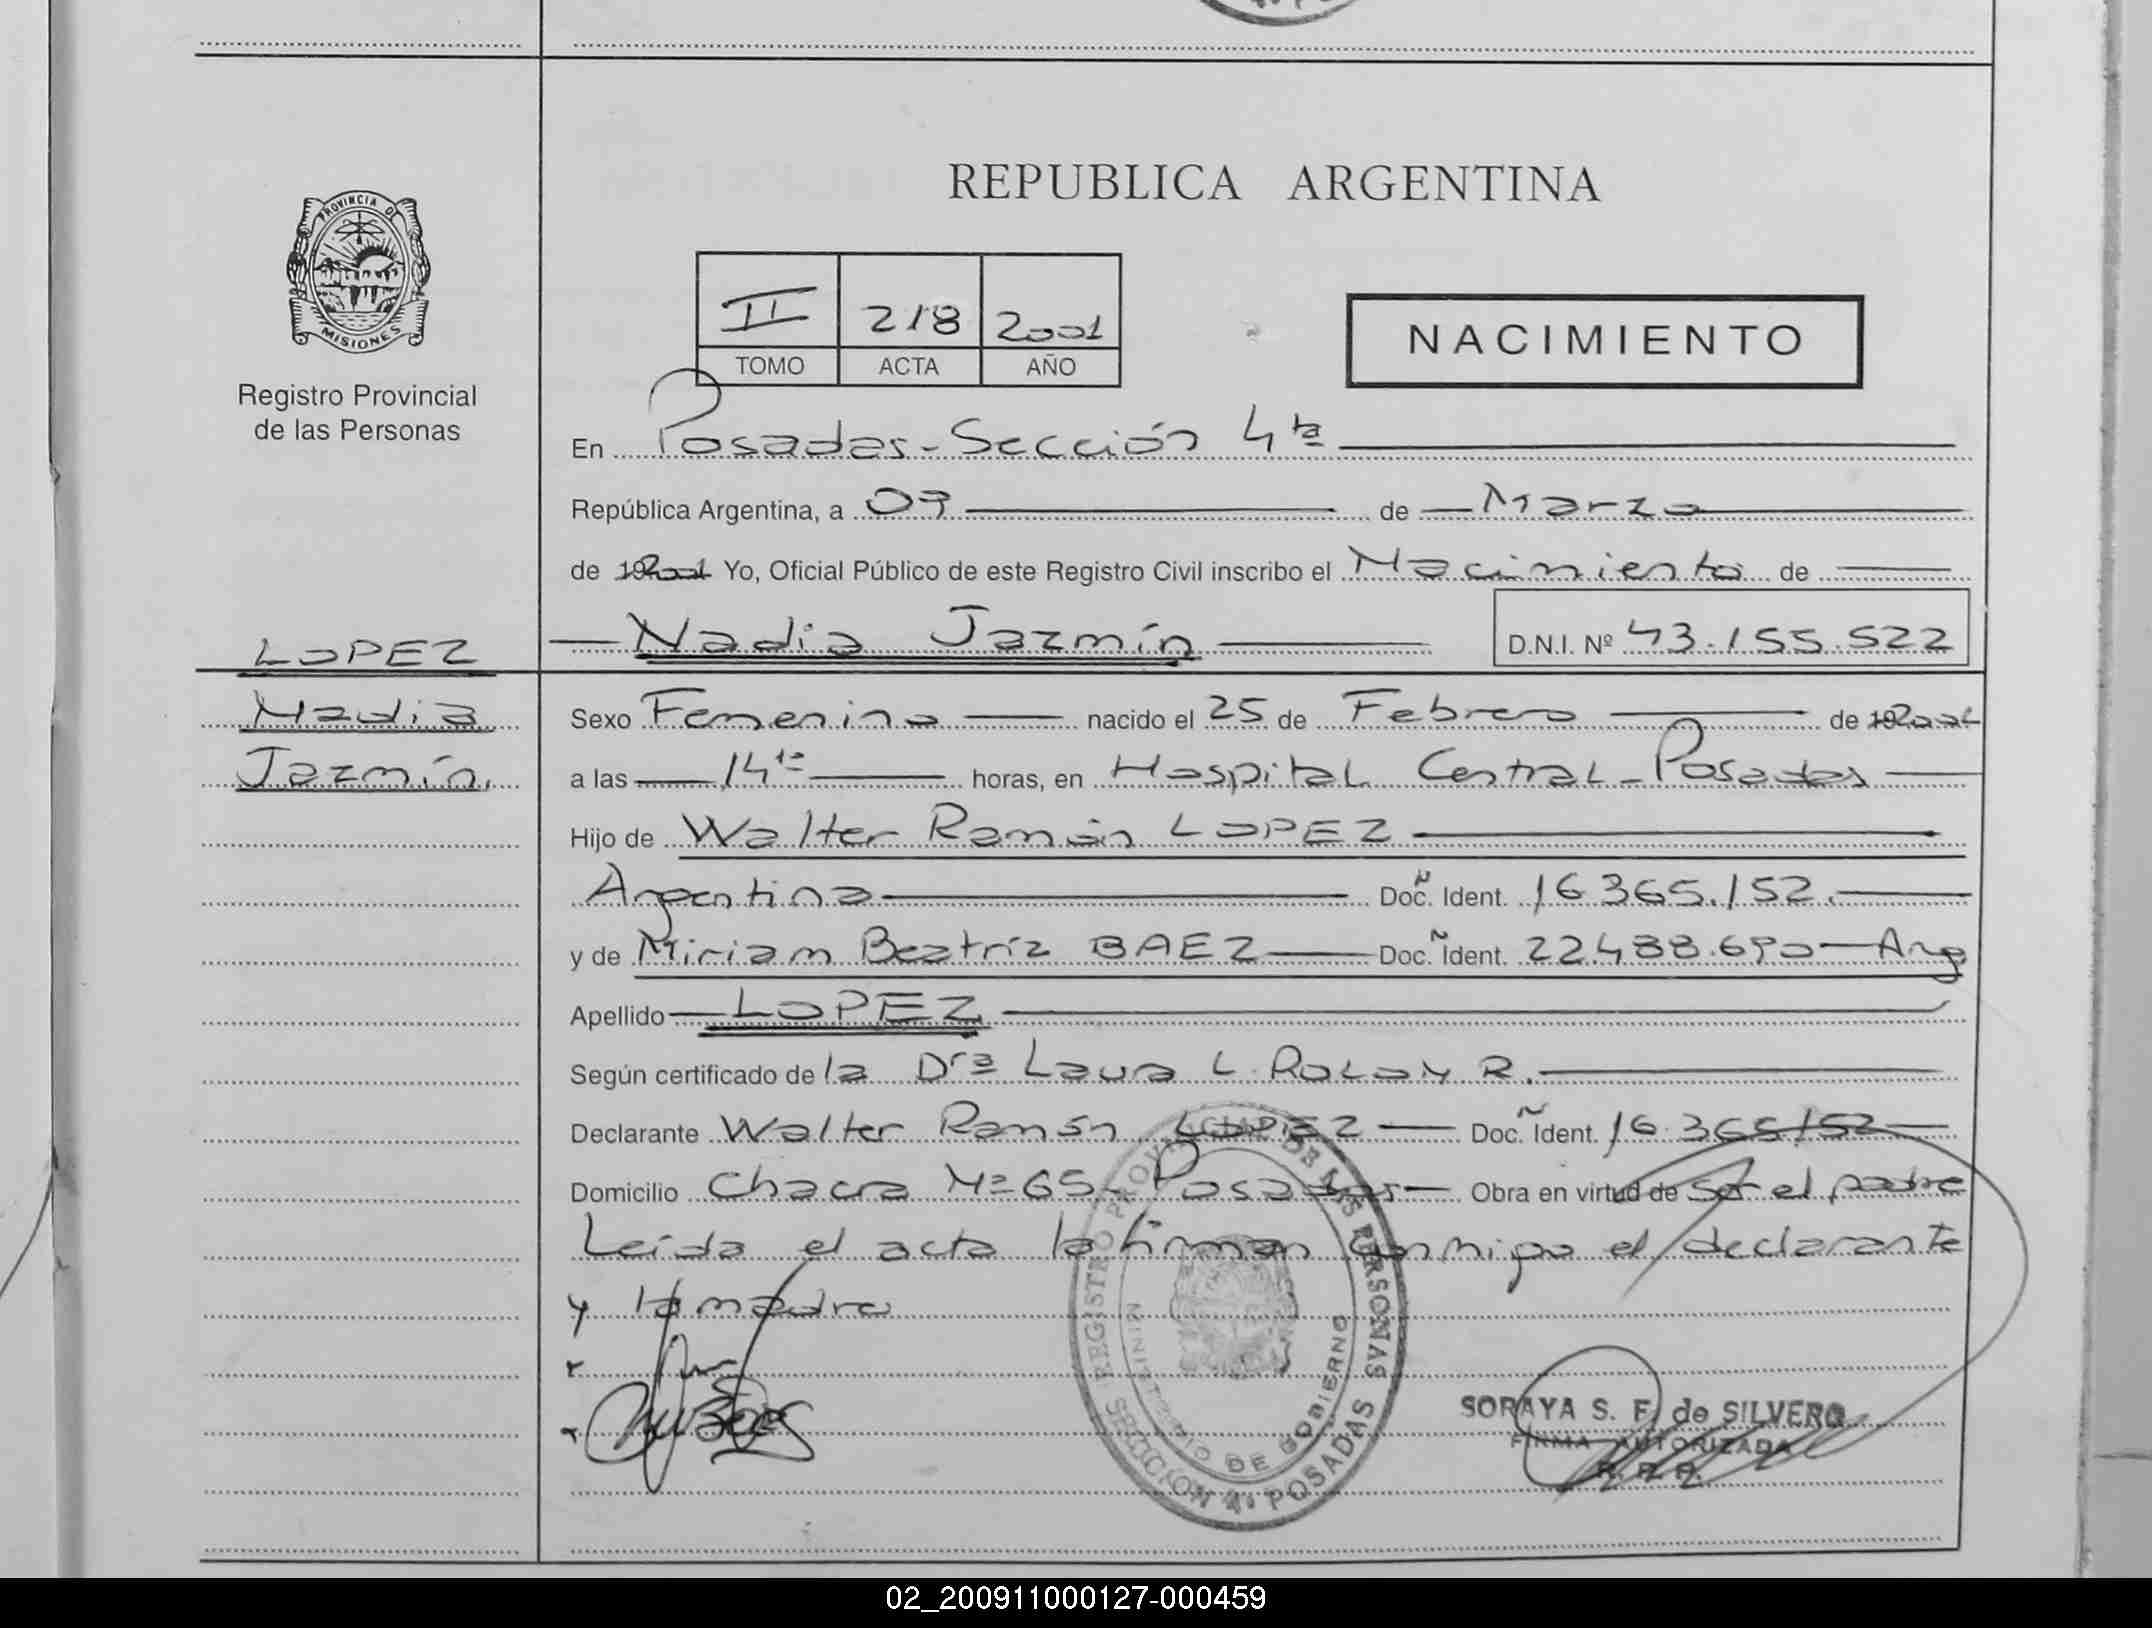 REPUBLICA ARGENTINA
PROVINCIA DE
MISIONES
Registro Provincial
de las Personas
II 218 2001
TOMO ACTA AÑO
NACIMIENTO
En Posadas - Sección 4ta
República Argentina, a 07 de Marzo
de 2001 Yo, Oficial Público de este Registro Civil inscribo el Nacimiento de
Nadia Jazmín D.N.I. Nº 43.155.522
LOPEZ
Nadia
Jazmín.
Sexo Femenino nacido el 25 de Febrero de 2001
a las 14 horas, en Hospital Central - Posadas
Hijo de Walter Ramón LOPEZ
Argentina Doc. Ident. 16.365.152.
y de Miriam Beatríz BAEZ Doc. Ident. 22.488.690 - Arg
Apellido LOPEZ
Según certificado de la Dra Laura L. R.
Declarante Walter Ramón LOPEZ Doc. Ident. 16.365.152
Domicilio Chacra Nº 65 - Posadas - Obra en virtud de ser el padre
Leída el acta la firman conmigo el declarante
y la madre
REGISTRO PROVINCIAL DE LAS PERSONAS
MINISTERIO DE GOBIERNO
SECCION 4ª POSADAS
SORAYA S. F. de SILVERO
FIRMA AUTORIZADA
R. P. P.
02_200911000127-000459